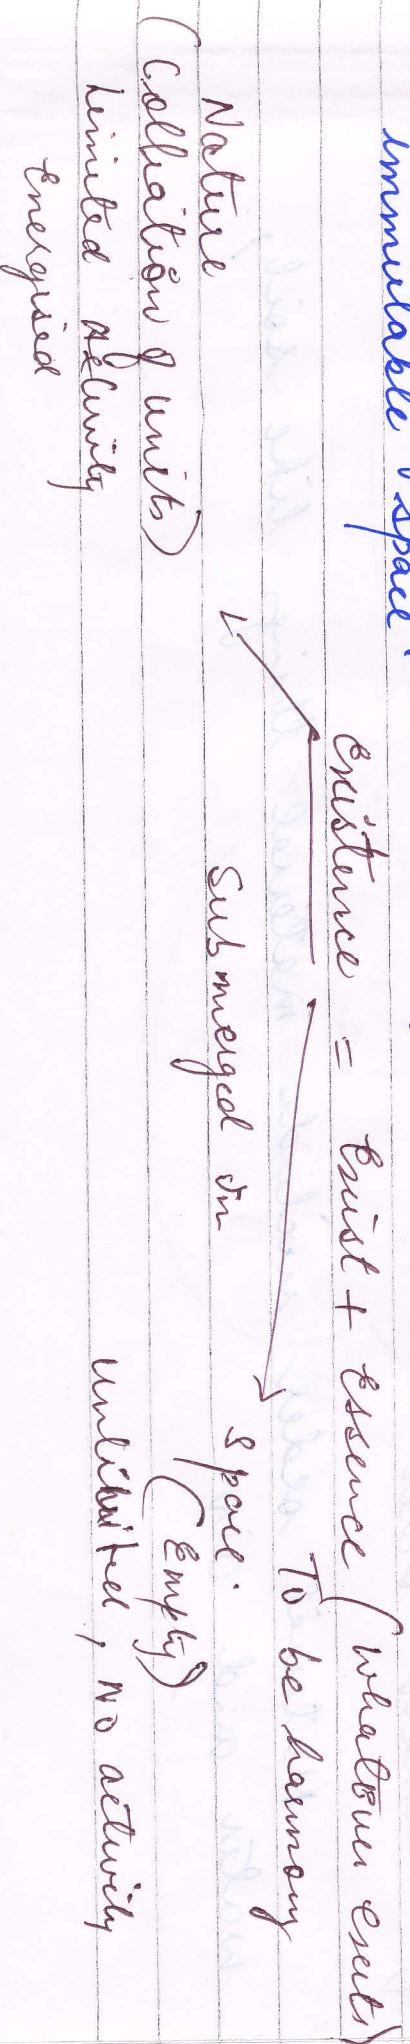 immutable space.
Existence = Exist + Essence (whatever exists)
To be harmony
Nature Submerged in Space.
(Collection of units) (Empty)
Limited Activity unlimited, No activity
Energised